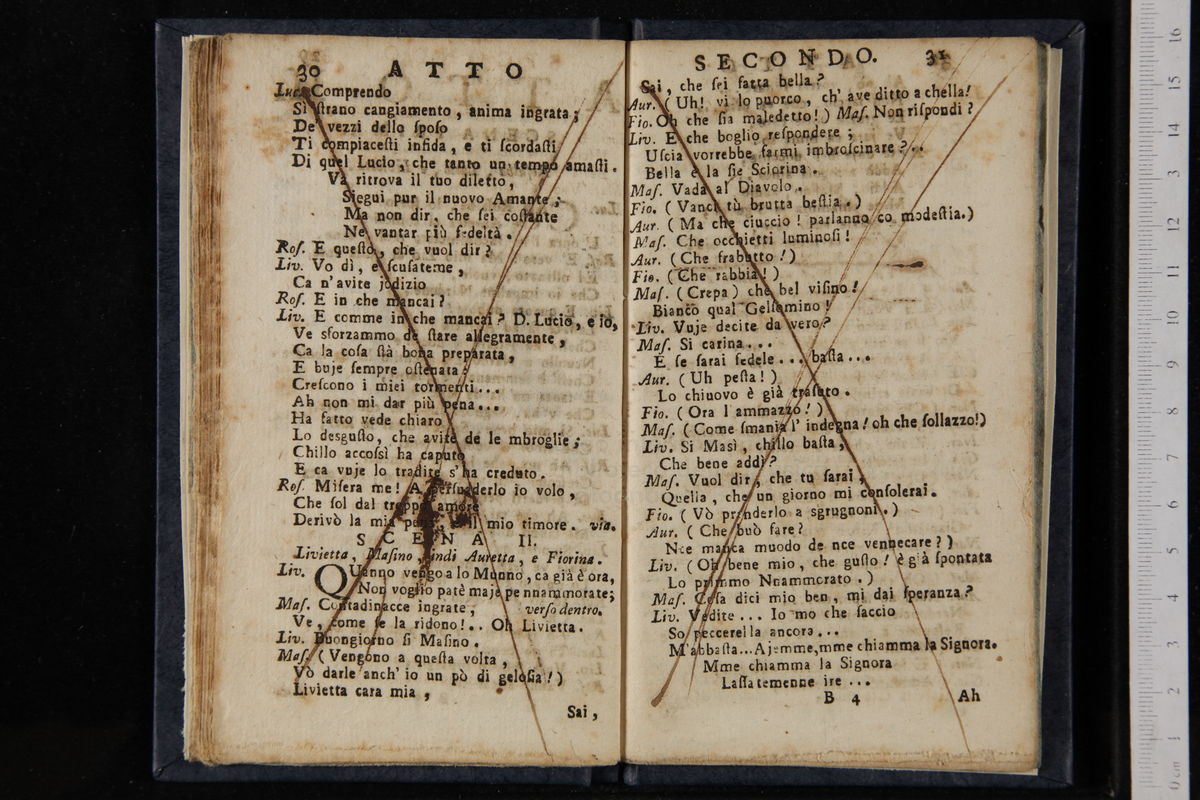 30 ATTO
Luc. Comprendo
Sì ſtrano cangiamento, anima ingrata;
De' vezzi dello ſpoſo
Ti compiaceſti infida, e ti ſcordaſti
Di quel Lucio, che tanto un tempo amaſti.
Va ritrova il tuo diletto,
Siegui pur il nuovo Amante;
Ma non dir, che ſei coſtante
Ne vantar più fedeltà.
Roſ. E queſto, che vuol dir?
Liv. Vo dì, e ſcuſateme,
Ca n'avite jodizio
Roſ. E in che mancai?
Liv. E comme in che mancai? D. Lucio, e io,
Ve sforzammo de ſtare allegramente,
Ca la coſa ſtà bona preparata,
E buje ſempre oſtenata?
Creſcono i miei tormenti...
Ah non mi dar più pena...
Ha fatto vede chiaro
Lo desguſto, che avite de le mbroglie;
Chillo accoſſì ha caputo
E ca vuje lo tradite s'ha creduto.
Roſ. Miſera me! A perſuaderlo io volo,
Che ſol dal troppo amore
Derivò la mia il mio timore. via.
SCENA II.
Livietta, Maſino, indi Auretta, e Fiorina.
Liv. QUanno vengo a lo Munno, ca già è ora,
Non voglio patè maje pe nnammorate;
Maſ. Contadinacce ingrate, verſo dentro.
Ve, come ſe la ridono!.. Oh Livietta.
Liv. Buongiorno ſi Maſino.
Maſ. (Vengono a queſta volta,
Vò darle anch' io un pò di geloſia!)
Livietta cara mia,
Sai,
SECONDO. 31
Sai, che ſei fatta bella?
Aur. (Uh! vi lo puorco, ch' ave ditto a chella!
Fio. Oh che ſia maledetto!) Maſ. Non riſpondi?
Liv. E che boglio reſpondere;
Uſcia vorrebbe farmi imbroſcinare?..
Bella è la ſie Sciorina.
Maſ. Vada al Diavolo.
Fio. (Vanci tù brutta beſtia.)
Aur. (Ma che ciuccio! parlanno co modeſtia.)
Maſ. Che occhietti luminoſi!
Aur. (Che frabutto!)
Fio. (Che rabbia!)
Maſ. (Crepa) che bel viſino!
Bianco qual Gelſomino!
Liv. Vuje decite da vero?
Maſ. Si carina...
E ſe ſarai fedele... baſta...
Aur. (Uh peſta!)
Lo chiuovo è già traſuto.
Fio. (Ora l'ammazzo!)
Maſ. (Come ſmania l' indegna! oh che ſollazzo!)
Liv. Si Masì, chillo baſta,
Che bene addì?
Maſ. Vuol dir, che tu ſarai,
Quella, che un giorno mi conſolerai.
Fio. (Vò prenderlo a sgrugnoni.)
Aur. (Che può fare?
Nce manca muodo de nce vennecare?)
Liv. (Oh bene mio, che guſto! è già ſpontata
Lo primmo Nnammorato.)
Maſ. Coſa dici mio ben, mi dai ſperanza?
Liv. Vedite... Io mo che ſaccio
So peccerella ancora...
M'abbaſta... Ajemme, mme chiamma la Signora.
Mme chiamma la Signora
Laſſatemenne ire...
B 4 Ah